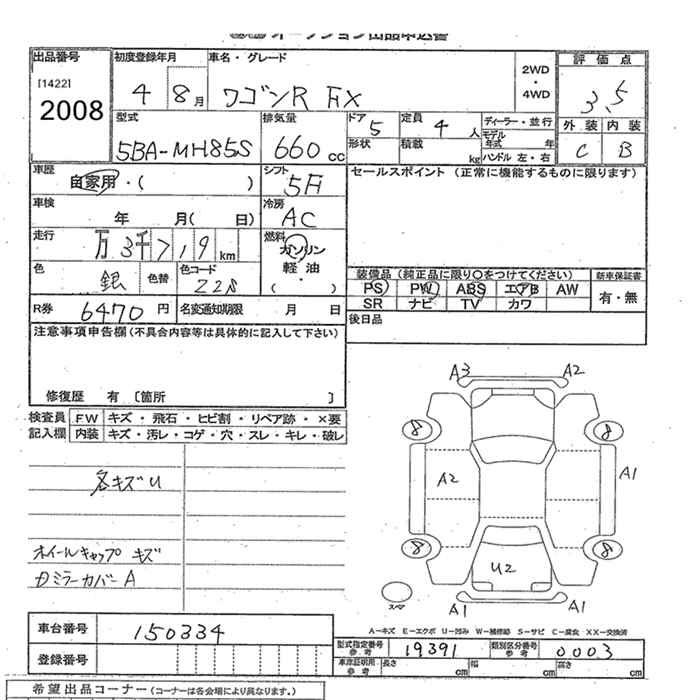 オークション出品申込書
出品番号 初度登録年月 車名・グレード 2WD・4WD 評価点
[1422]
2008 4 8月 ワゴンR FX 3.5
型式 排気量 ドア 5 定員 4人 ディーラー・並行 外装 内装
5BA-MH85S 660cc 形状 積載 kg モデル年式 年 C B
ハンドル 左・右
車歴 シフト セールスポイント (正常に機能するものに限ります)
自家用・( ) 5F
車検 冷房
年 月( 日) AC
走行 燃料
万 3千719km ガソリン
色 色替 色コード 軽油
銀 Z2S ( ・ )
装備品(純正品に限り○をつけてください) 新車保証書
PS PW ABS エアB AW 有・無
SR ナビ TV カワ
R券 6470円 名変通知期限 月 日
後日品
注意事項申告欄(不具合内容等は具体的に記入して下さい)
修復歴 有 [箇所 ]
検査員 FW キズ・飛石・ヒビ割・リペア跡・×要
記入欄 内装 キズ・汚レ・コゲ・穴・スレ・キレ・破レ
A3 A2
8 8
各キズU A2 A1
ホイールキャップ キズ 8 8
Dミラーカバー A U2
スペア A1 A1
A-キズ E-エクボ U-凹み W-補修跡 S-サビ C-腐食 XX-交換済
車台番号 150334
型式指定番号 参考 19391 類別区分番号 参考 0003
登録番号 車庫証明用 参考 長さ cm 幅 cm 高さ cm
希望出品コーナー (コーナーは各会場により異なります。)